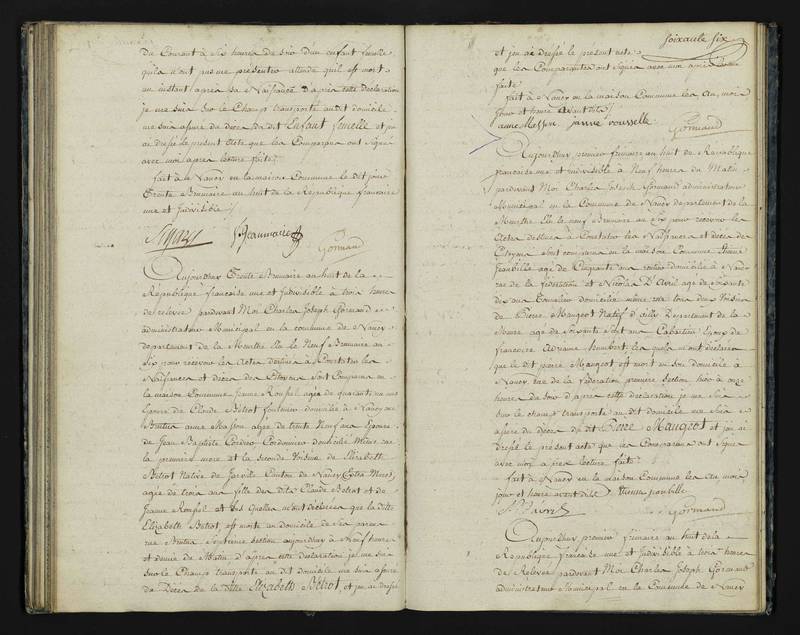 du Courant à six heures du soir d'un enfant femelle
qu'ils n'ont pas me présenter attendu qu'il est mort
un instant après sa Naissance d'après cette déclaration
je me suis sur le Champ transporté au dit domicile
me suis assuré du décès du dit Enfant femelle et j'ai
ai dressé le present acte que les Comparans ont signé
avec moi après lecture faite
fait à Nancy en la maison Commune le dit jour
trente Brumaire an huit de la République française
une et Indivisible
Beaumarié
Gormand
Aujourdhuy trente Brumaire an huit de la
République française une et Indivisible à trois heures
de relevée pardevant Moi Charles Joseph Gormand
administrateur Municipal en la commune de Nancy
departement de la Meurthe Elu le Neuf Brumaire an
six pour recevoir les Actes destinés à Constater les
Naissances et décès des Citoyens sont Comparus en
la maison Commune Jeanne Roussel agée de quarante
Epouse de Claude Betrot domicilié à Nancy rue
anne Masson agée de trente Neuf ans Epouse
de Jean Baptiste Cordier Cordonnier domicilié même rue
la premiere mere et la seconde Voisine de Elizabeth
Betrot Native de Jarville Canton de Nancy
agée de trois ans fille des dits Claude Betrot et de
Jeanne Roussel et les quelles m'ont déclarée que la ditte
Elizabeth Betrot est morte au domicile de ses pere
rue septieme section aujourdhuy à Neuf heures
et demie du Matin d'apres cette declaration je me suis
sur le Champ transporté au dit domicile me suis assuré
du Deces de la ditte Elizabeth Betrot, et j'ai dressé
soixante six
et j'en ai dressé le present acte
que les Comparantes ont signé avec moi après lecture
faite
fait à Nancy en la maison Commune les an, mois
Jour et heure avant dits
anne Masson janne rousselle
Gormand
Aujourdhuy premier frimaire an huit de la République
française une et indivisible à Neuf heures du Matin
pardevant Moi Charles Joseph Gormand administrateur
Municipal en la Commune de Nancy departement de la
Meurthe Elu le neuf Brumaire an six pour recevoir les
Actes destinés à Constater les Naissances et décès des
Citoyens sont comparus en la maison Commune
agé de Cinquante ans domicilié à Nancy
rue de la federation et Nicolas D'Avril agé de soixante
dix ans Tonnelier domicilié même rue tous deux Voisins
de Pierre Maugeot Natif d'ailly Departement de la
Meuse agé de soixante sept ans Cabartier Epoux de
francoise Adriane humbert les quels m'ont déclarés
que le dit pierre Maugeot est mort en son domicile à
Nancy rue de la federation premiere section hier à onze
heures du soir d'apres cette declaration je me suis
sur le champ transporté au dit domicile me suis
assuré du décès du dit Pierre Maugeot et j'en ai
Dressé le présent acte que les Comparans ont signé
avec moi après lecture faite
fait à Nancy en la maison Commune les an, mois
jour et heure avant dits
Gormand
Aujourdhuy premier frimaire an huit de la
République française une et Indivisible à trois heures
de Relevée pardevant Moi Charles Joseph Gormand
administrateur Municipal en la Commune de Nancy